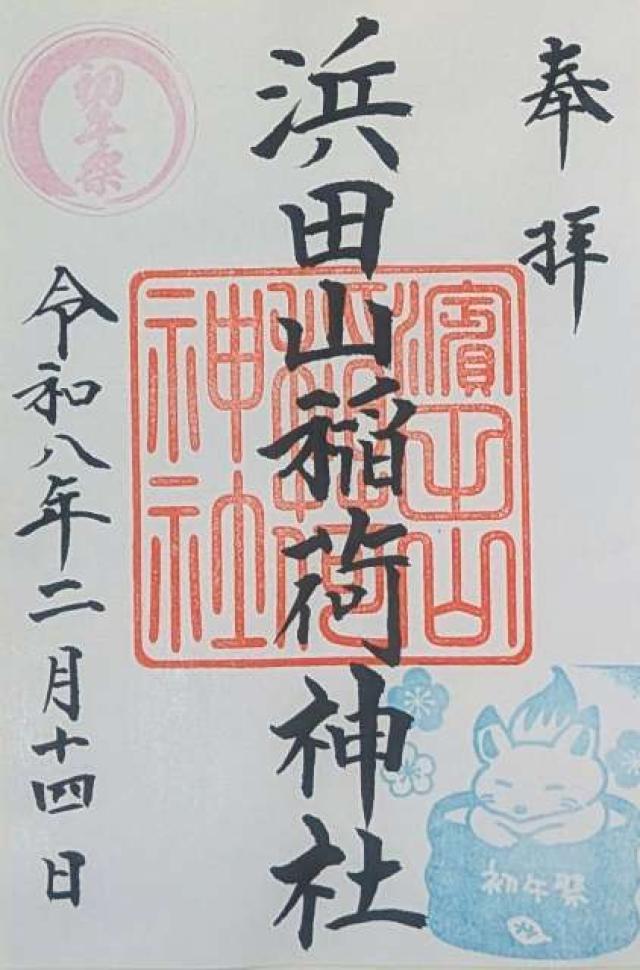 奉拝
浜田山稲荷神社
濱田山
稲荷
神社
令和八年二月十四日
初午祭
初午祭